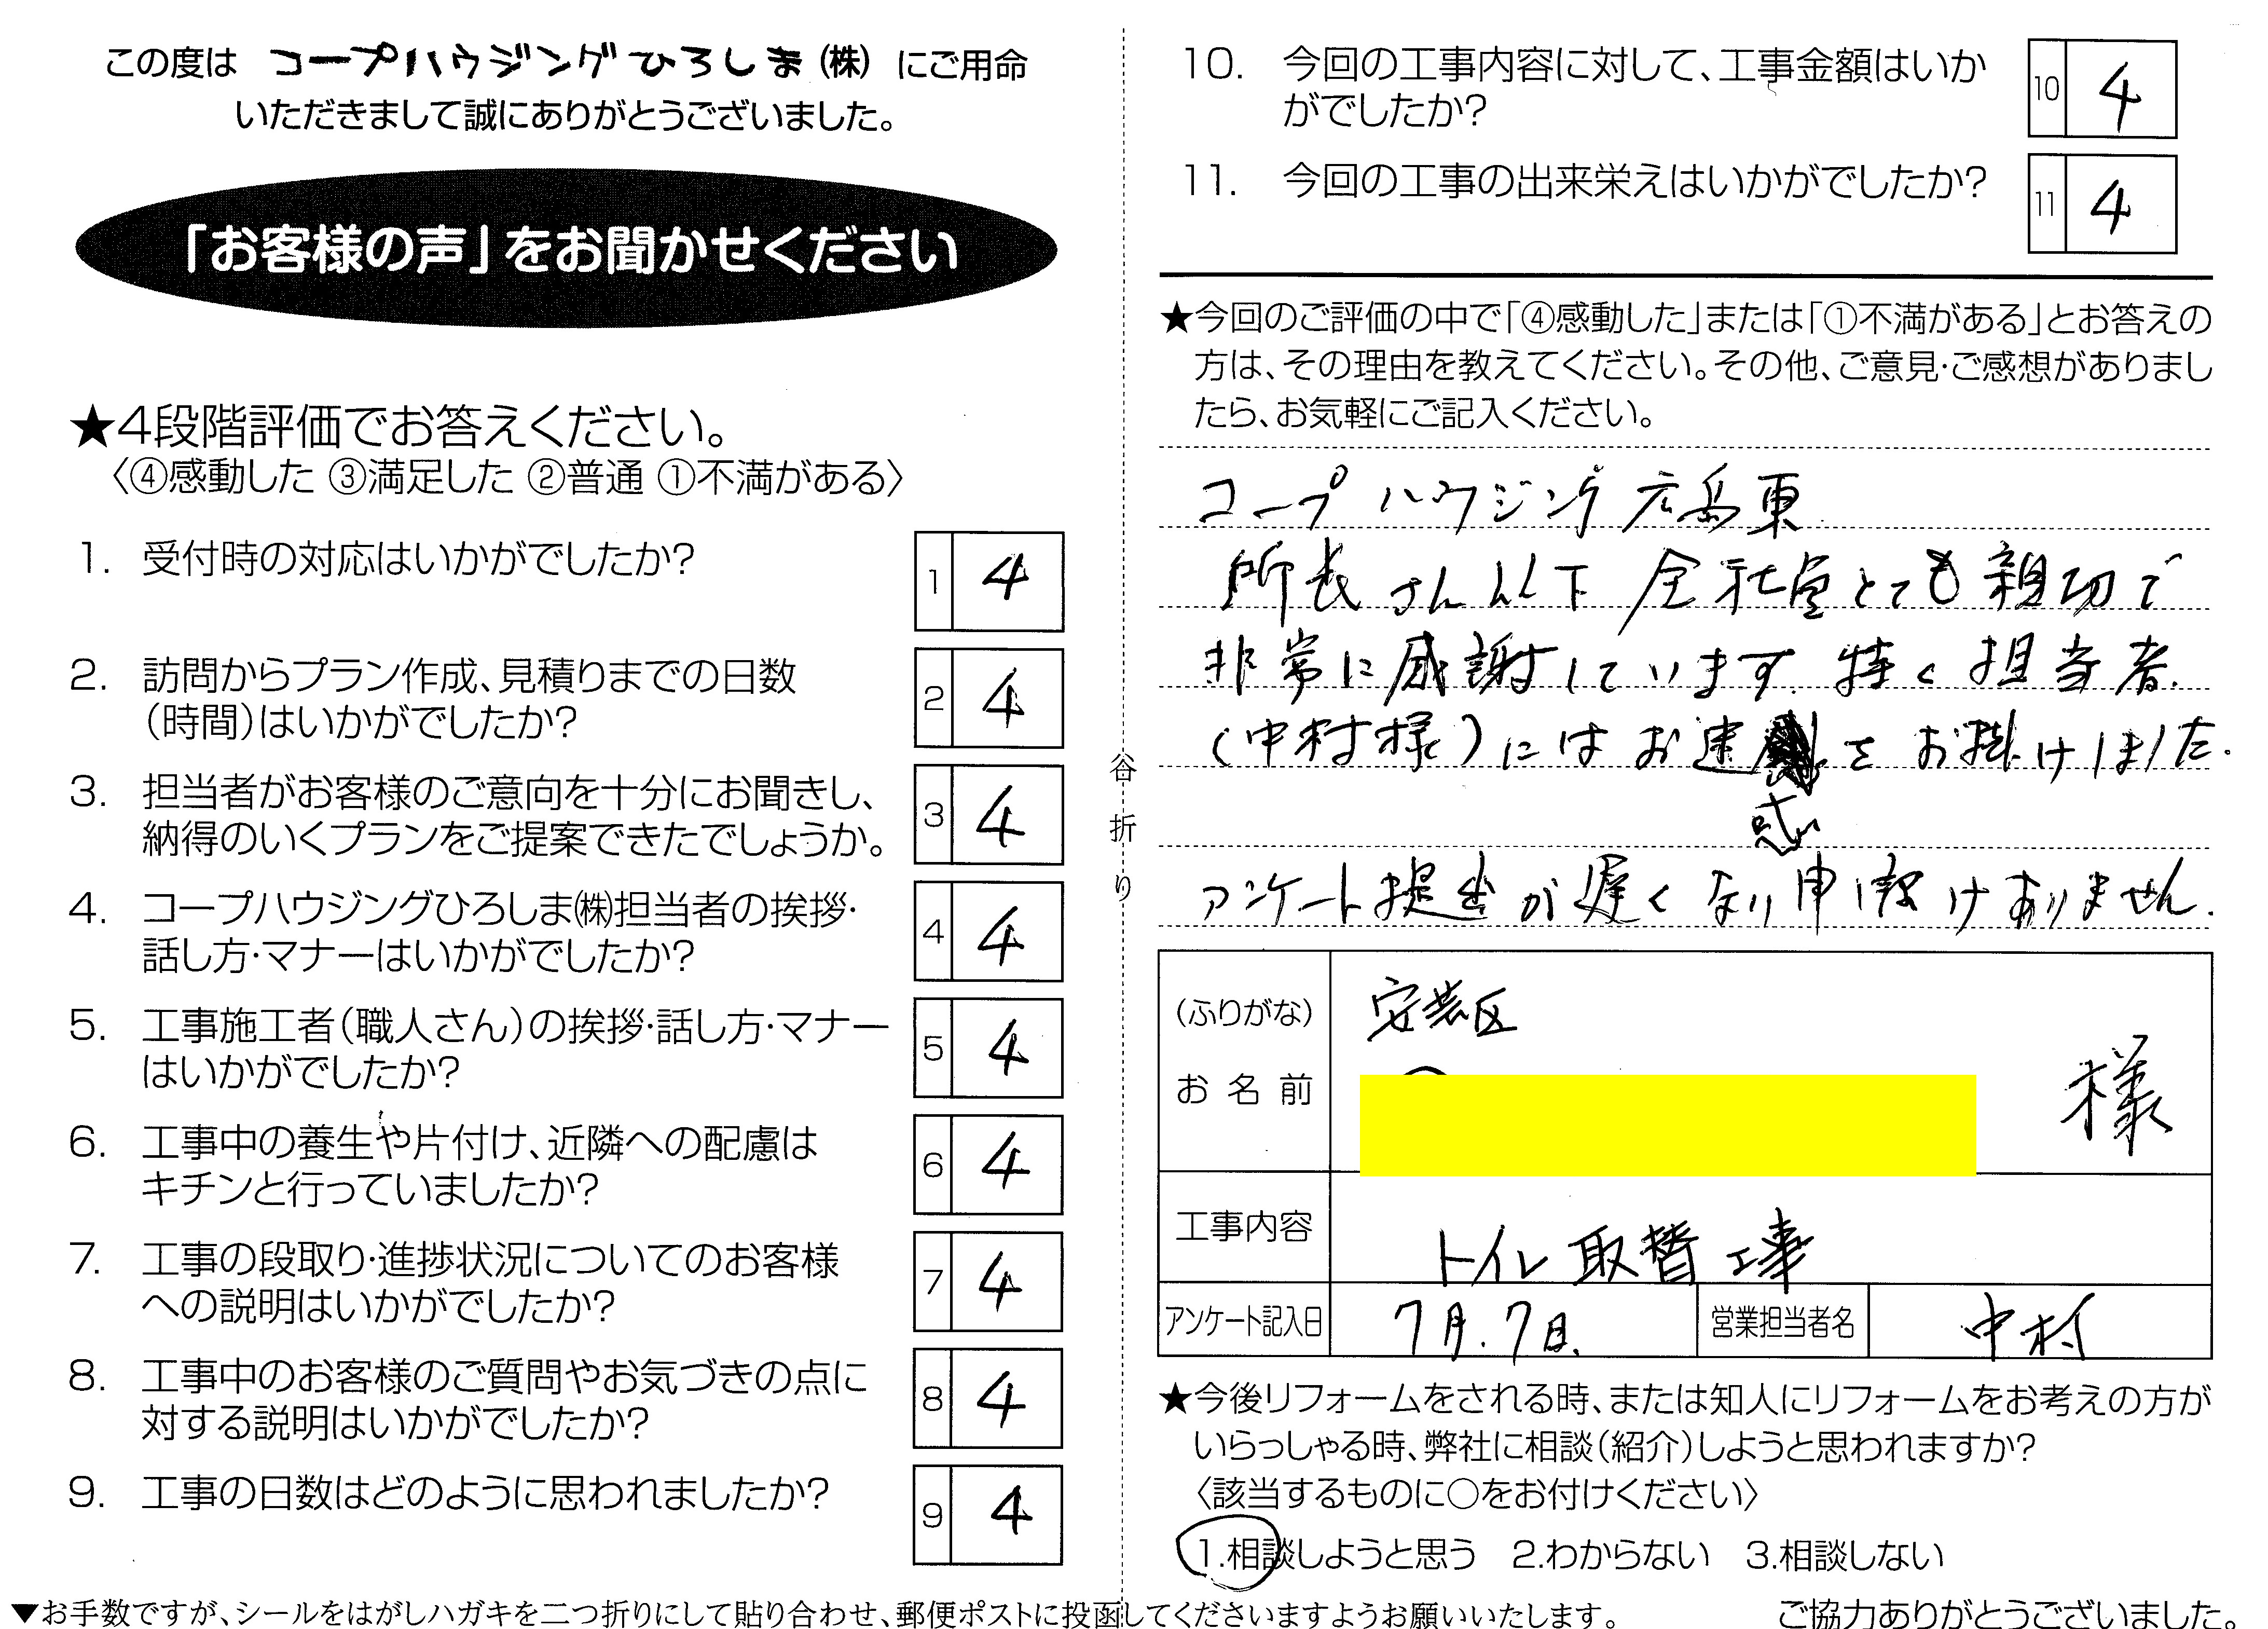 この度は コープハウジングひろしま(株) にご用命
いただきまして誠にありがとうございました。
「お客様の声」をお聞かせください
★4段階評価でお答えください。
〈④感動した ③満足した ②普通 ①不満がある〉
1. 受付時の対応はいかがでしたか?
1 4
2. 訪問からプラン作成、見積りまでの日数
(時間)はいかがでしたか?
2 4
3. 担当者がお客様のご意向を十分にお聞きし、
納得のいくプランをご提案できたでしょうか。
3 4
4. コープハウジングひろしま㈱担当者の挨拶・
話し方・マナーはいかがでしたか?
4 4
5. 工事施工者(職人さん)の挨拶・話し方・マナー
はいかがでしたか?
5 4
6. 工事中の養生や片付け、近隣への配慮は
キチンと行っていましたか?
6 4
7. 工事の段取り・進捗状況についてのお客様
への説明はいかがでしたか?
7 4
8. 工事中のお客様のご質問やお気づきの点に
対する説明はいかがでしたか?
8 4
9. 工事の日数はどのように思われましたか?
9 4
谷折り
10. 今回の工事内容に対して、工事金額はいか
がでしたか?
10 4
11. 今回の工事の出来栄えはいかがでしたか?
11 4
★今回のご評価の中で「④感動した」または「①不満がある」とお答えの
方は、その理由を教えてください。その他、ご意見・ご感想がありまし
たら、お気軽にご記入ください。
コープハウジング広島東
所長さん以下 全社員とても親切で
非常に感謝しています. 特に担当者.
(中村様)にはお をお掛けしました.
惑
アンケート提出が遅くなり申し訳けありません.
(ふりがな) 安芸区
お名前 様
工事内容 トイレ取替工事
アンケート記入日 7月.7日. 営業担当者名 中村
★今後リフォームをされる時、または知人にリフォームをお考えの方が
いらっしゃる時、弊社に相談(紹介)しようと思われますか?
〈該当するものに○をお付けください〉
1.相談しようと思う 2.わからない 3.相談しない
▼お手数ですが、シールをはがしハガキを二つ折りにして貼り合わせ、郵便ポストに投函してくださいますようお願いいたします。
ご協力ありがとうございました。